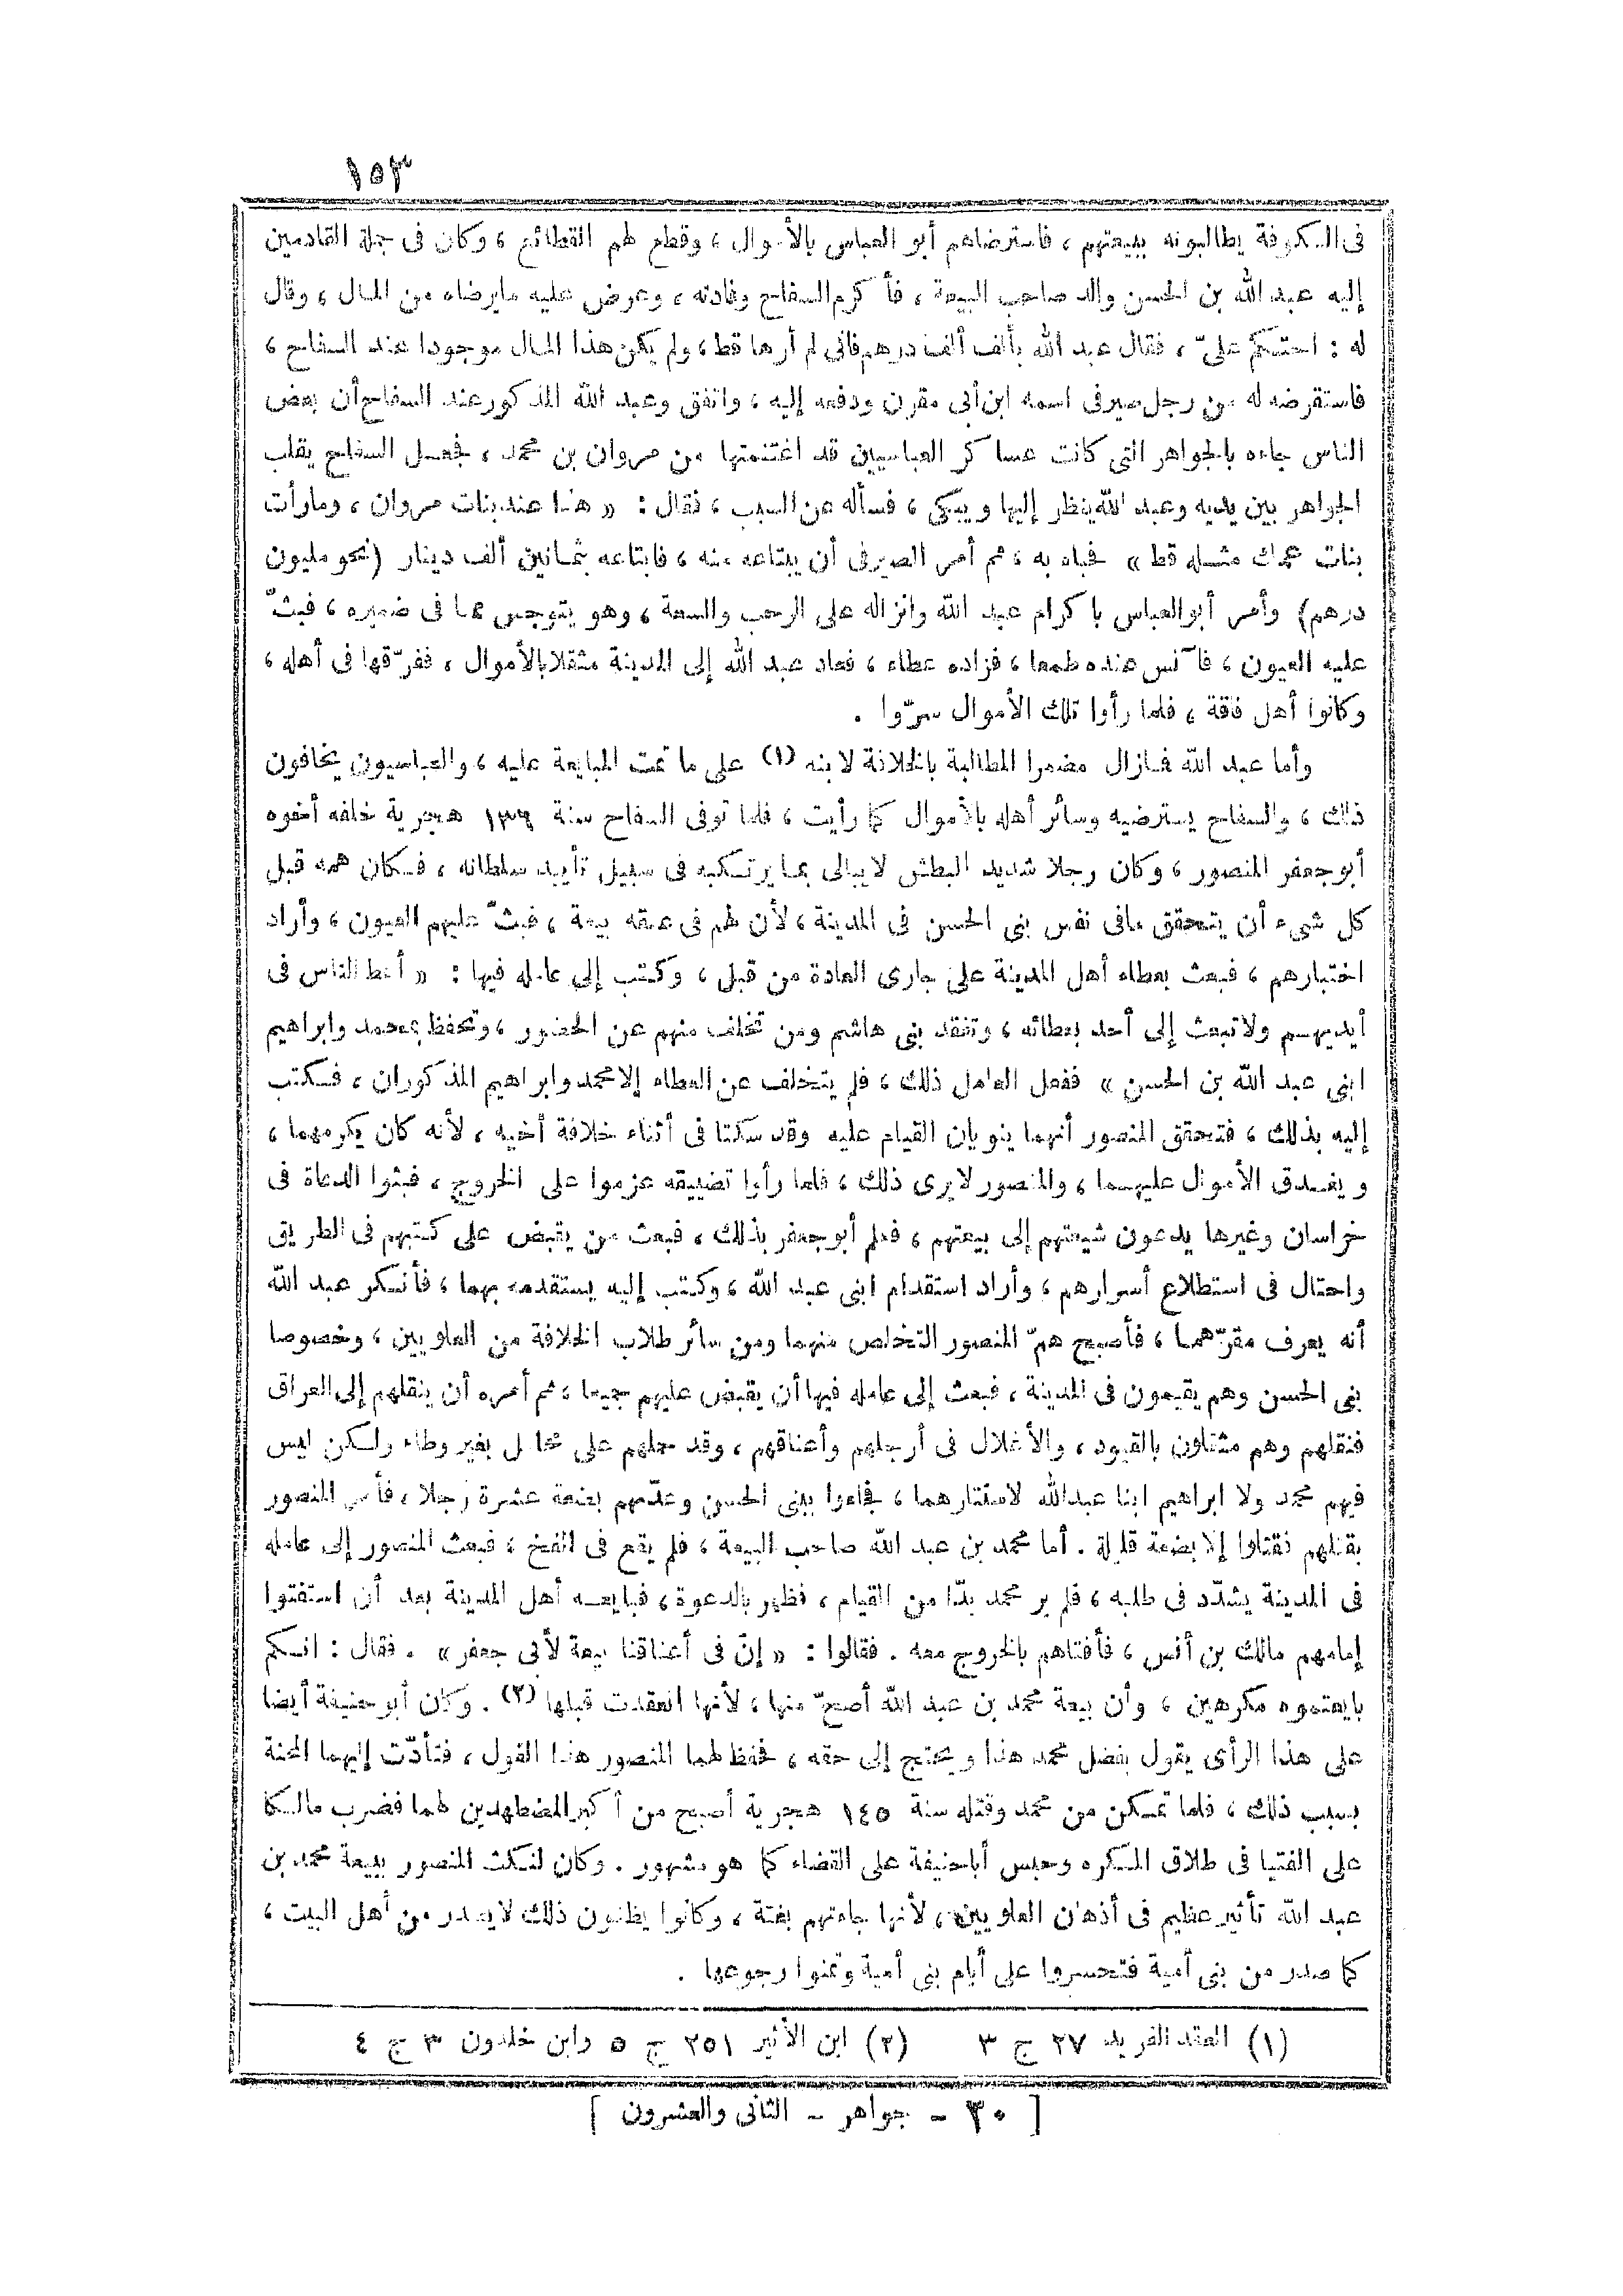 ١٥٣
فى الكوفة يطالبونه ببيعتهم ، فاسترضاهم أبو العباس بالأموال ، وقطع لهم القطائع ، وكان فى جملة القادمين
إليه عبد الله بن الحسن والد صاحب البيعة ، فأكرم السفاح وفادته ، وعرض عليه مايرضاه من المال ، وقال
له : احتكم علىّ ، فقال عبد الله بألف ألف درهم فانى لم أرها قط ، ولم يكن هذا المال موجودا عند السفاح ،
فاستقرضه له من رجل صيرفى اسمه ابن أبى مقرن ودفعه إليه ، واتفق وعبد الله المذكور عند السفاح أن بعض
الناس جاءه بالجواهر التى كانت عساكر العباسيين قد اغتنمتها من مروان بن محمد ، فجعل السفاح يقلب
الجواهر بين يديه وعبد الله ينظر إليها ويبكى ، فسأله عن السبب ، فقال : « هذا عند بنات مروان ، ومارأت
بنات عمك مثله قط » فحباه به ، ثم أمر الصيرفى أن يبتاعه منه ، فابتاعه بثمانين ألف دينار (نحو مليون
درهم) وأمر أبو العباس باكرام عبد الله وانزاله على الرحب والسعة ، وهو يتوجس مما فى ضميره ، فبثّ
عليه العيون ، فآنس عنده طمعا ، فزاده عطاء ، فعاد عبد الله إلى المدينة مثقلا بالأموال ، ففرّقها فى أهله ،
وكانوا أهل فاقة ، فلما رأوا تلك الأموال سرّوا .
وأما عبد الله فمازال مضمرا المطالبة بالخلافة لابنه (١) على ما تمت المبايعة عليه ، والعباسيون يخافون
ذلك ، والسفاح يسترضيه وسائر أهله بالأموال كما رأيت ، فلما توفى السفاح سنة ١٣٦ هجرية خلفه أخوه
أبو جعفر المنصور ، وكان رجلا شديد البطش لايبالى بما يرتكبه فى سبيل تأييد سلطانه ، فكان همه قبل
كل شىء أن يتحقق مافى نفس بنى الحسن فى المدينة ، لأن لهم فى عنقه بيعة ، فبثّ عليهم العيون ، وأراد
اختبارهم ، فبعث بعطاء أهل المدينة على جارى العادة من قبل ، وكتب إلى عامله فيها : « أعط الناس فى
أيديهم ولاتبعث إلى أحد بعطائه ، وتفقد بنى هاشم ومن تخلف منهم عن الحضور ، وتحفظ بمحمد وابراهيم
ابنى عبد الله بن الحسن » ففعل العامل ذلك ، فلم يتخلف عن العطاء إلا محمد وابراهيم المذكوران ، فكتب
إليه بذلك ، فتحقق المنصور أنهما ينويان القيام عليه وقد سكتا فى أثناء خلافة أخيه ، لأنه كان يكرمهما ،
ويغدق الأموال عليهما ، والمنصور لايرى ذلك ، فلما رأوا تضييقه عزموا على الخروج ، فبثوا الدعاة فى
خراسان وغيرها يدعون شيعتهم إلى بيعتهم ، فعلم أبو جعفر بذلك ، فبعث من يقبض على كتبهم فى الطريق
واحتال فى استطلاع أسرارهم ، وأراد استقدام ابنى عبد الله ، وكتب إليه يستقدمه بهما ، فأنكر عبد الله
أنه يعرف مقرّهما ، فأصبح همّ المنصور التخلص منهما ومن سائر طلاب الخلافة من العلويين ، وخصوصا
بنى الحسن وهم يقيمون فى المدينة ، فبعث إلى عامله فيها أن يقبض عليهم جميعا ، ثم أمره أن ينقلهم إلى العراق
فنقلهم وهم مثقلون بالقيود ، والأغلال فى أرجلهم وأعناقهم ، وقد حملهم على محامل بغير وطاء ولكن ليس
فيهم محمد ولا ابراهيم ابنا عبدالله لاستتارهما ، فجاءوا ببنى الحسن وعددهم بضعة عشرة رجلا ، فأمر المنصور
بقتلهم فقتلوا إلا بضعة قليلة . أما محمد بن عبد الله صاحب البيعة ، فلم يقع فى الفخ ، فبعث المنصور إلى عامله
فى المدينة يشدّد فى طلبه ، فلم ير محمد بدّا من القيام ، فظهر بالدعوة ، فبايعه أهل المدينة بعد أن استفتوا
إمامهم مالك بن أنس ، فأفتاهم بالخروج معه . فقالوا : « إنّ فى أعناقنا بيعة لأبى جعفر » . فقال : انكم
بايعتموه مكرهين ، وأن بيعة محمد بن عبد الله أصحّ منها ، لأنها انعقدت قبلها (٢) . وكان أبو حنيفة أيضا
على هذا الرأى يقول بفضل محمد هذا ويحتج إلى حقه ، فحفظ لهما المنصور هذا القول ، فتأدّت إليهما المحنة
بسبب ذلك ، فلما تمكن من محمد وقتله سنة ١٤٥ هجرية أصبح من أكبر المضطهدين لهما فضرب مالكا
على الفتيا فى طلاق المكره وحبس أباحنيفة على القضاء كما هو مشهور . وكان لنكث المنصور ببيعة محمد بن
عبد الله تأثير عظيم فى أذهان العلويين ، لأنها جاءتهم بغتة ، وكانوا يظنون ذلك لايصدر من أهل البيت ،
كما صدر من بنى أمية فتحسروا على أيام بنى أمية وتمنوا رجوعها .
(١) العقد الفريد ٢٧ ج ٣ (٢) ابن الأثير ٢٥١ ج ٥ وابن خلدون ٣ ج ٤
[ ٣٠ - جواهر - الثانى والعشرون ]